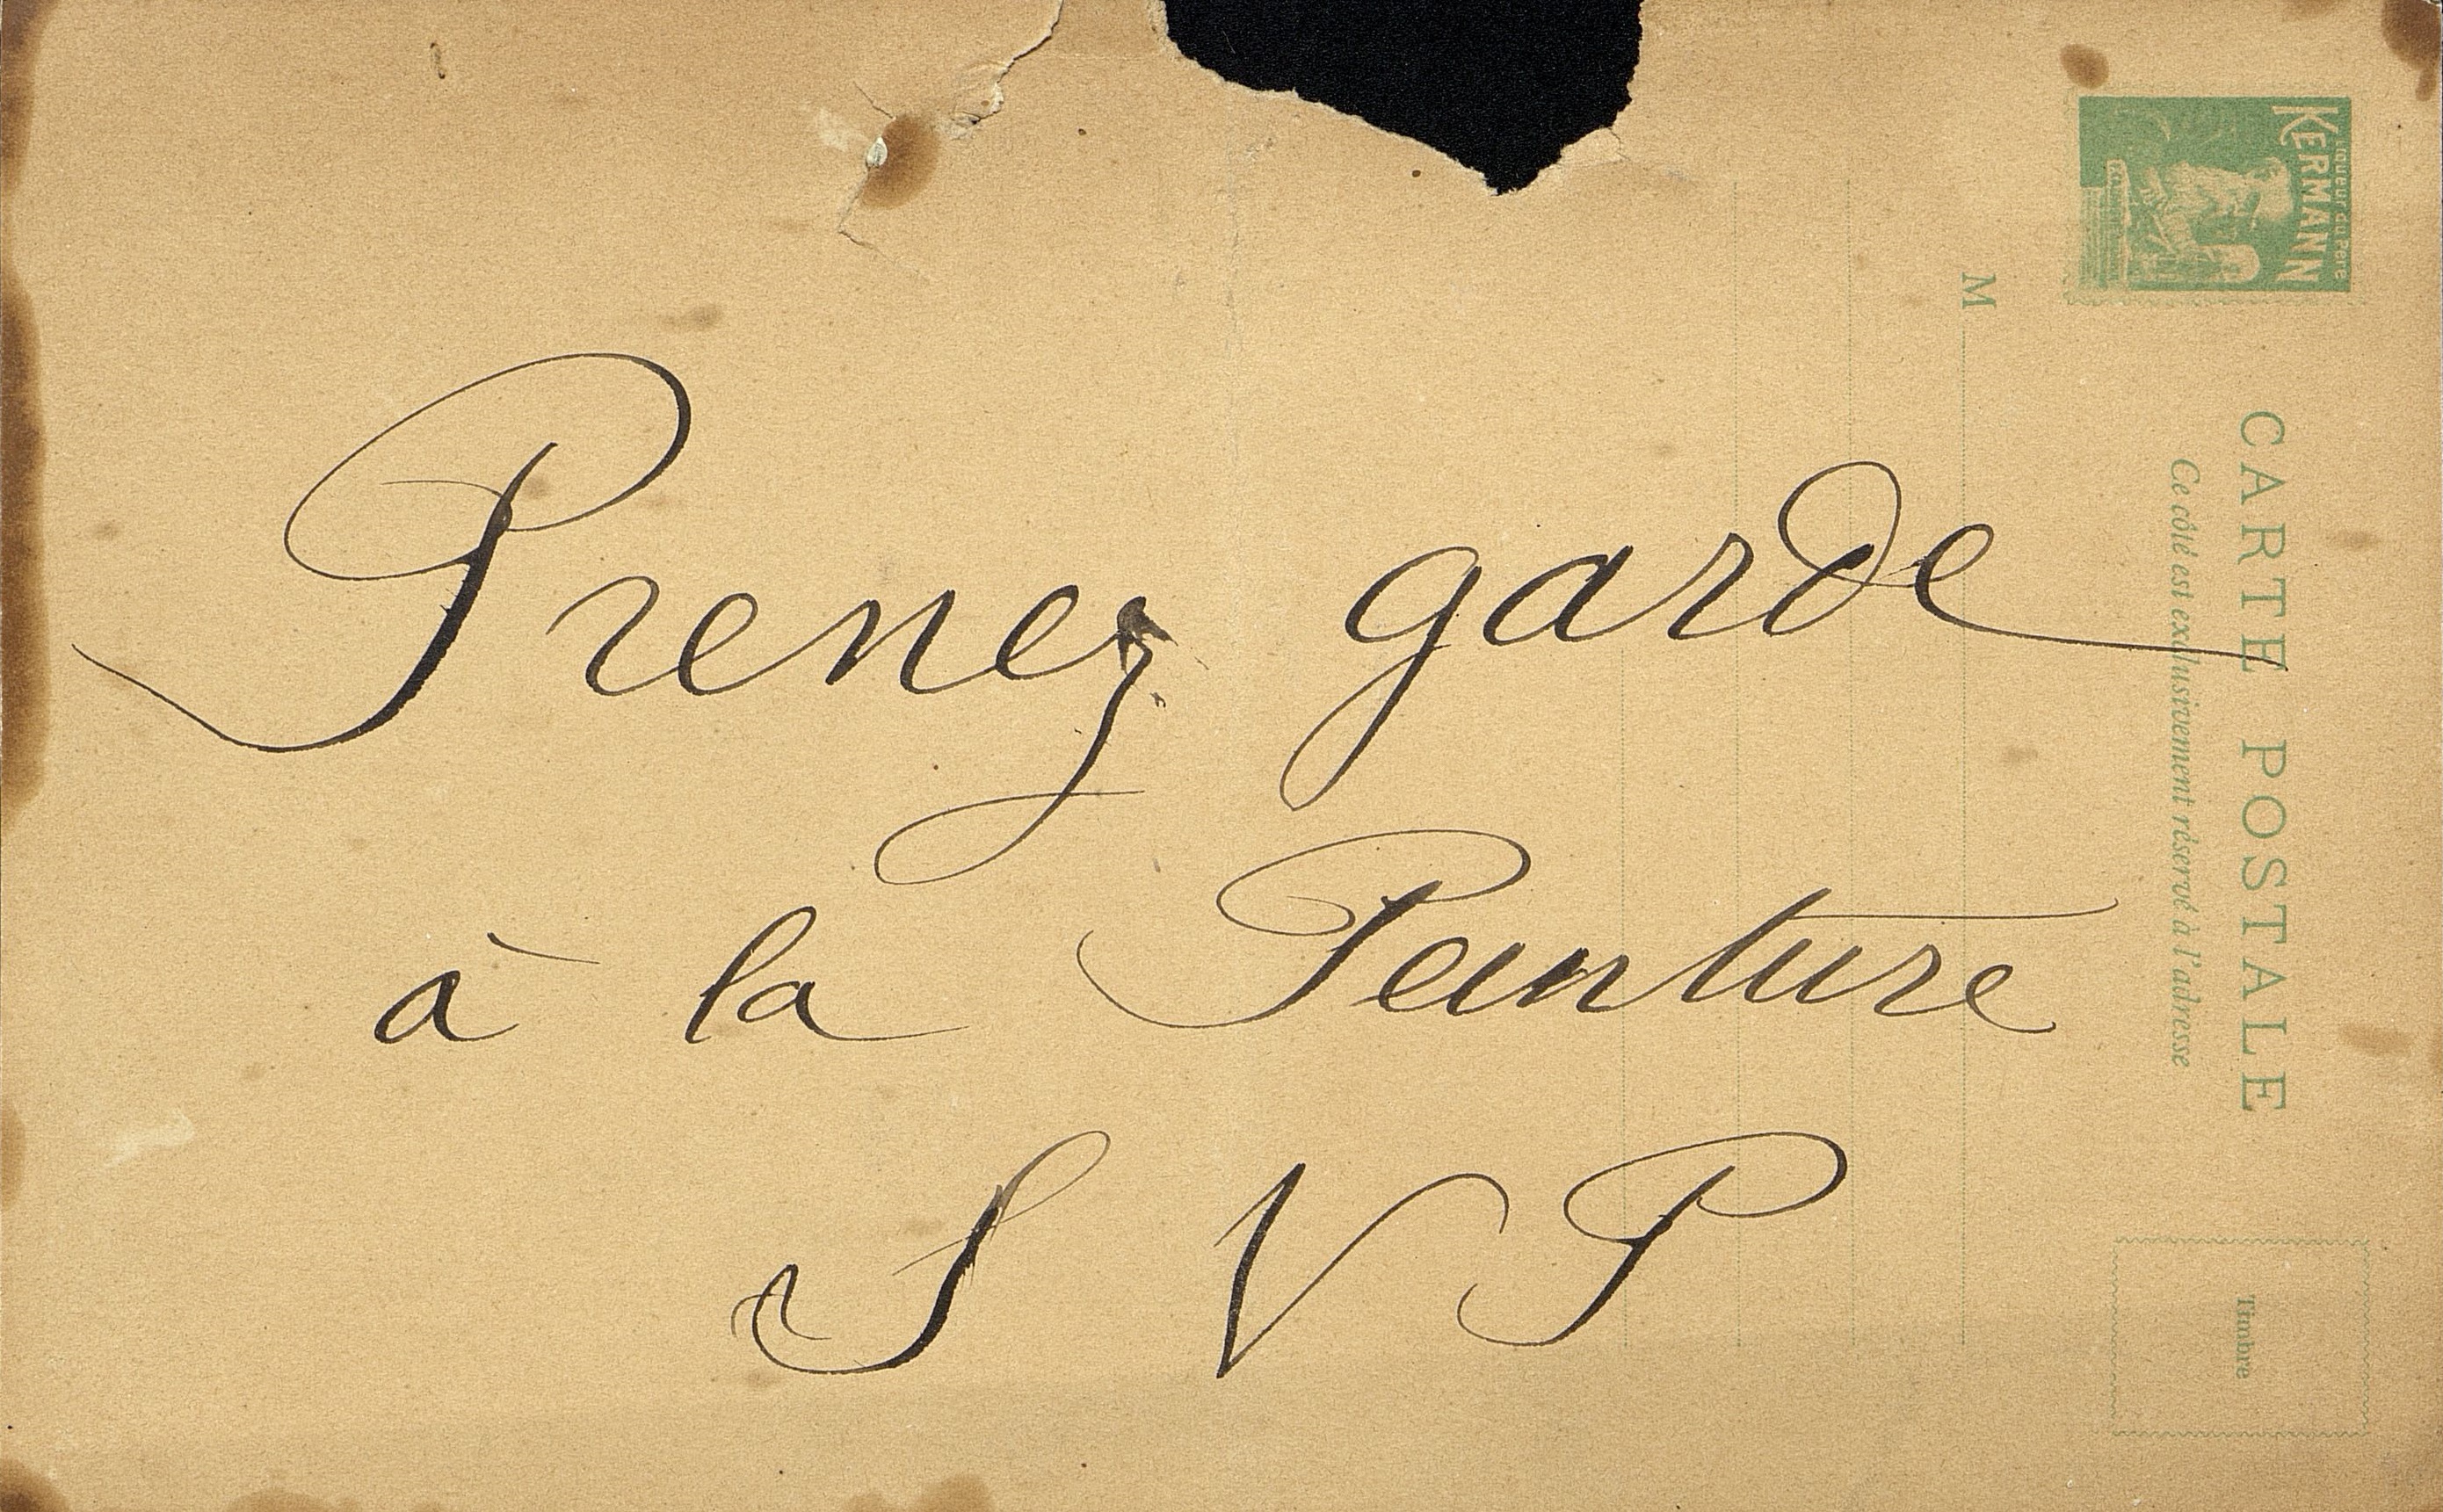 Prenez garde
à la Peinture
S V P
Liqueur du Père
KERMANN
CARTE POSTALE
Ce côté est exclusivement réservé à l'adresse
M
Timbre